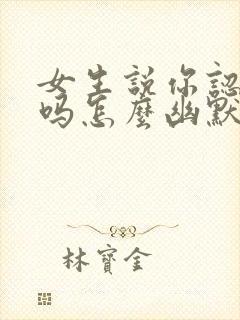 女生說你認
吗怎麼幽默
林寶金